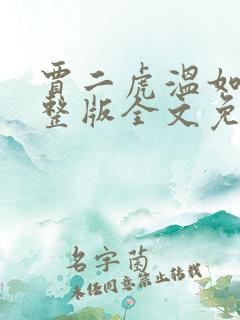 贾二虎温如
整版全文免
名字茵
未经同意禁止转载